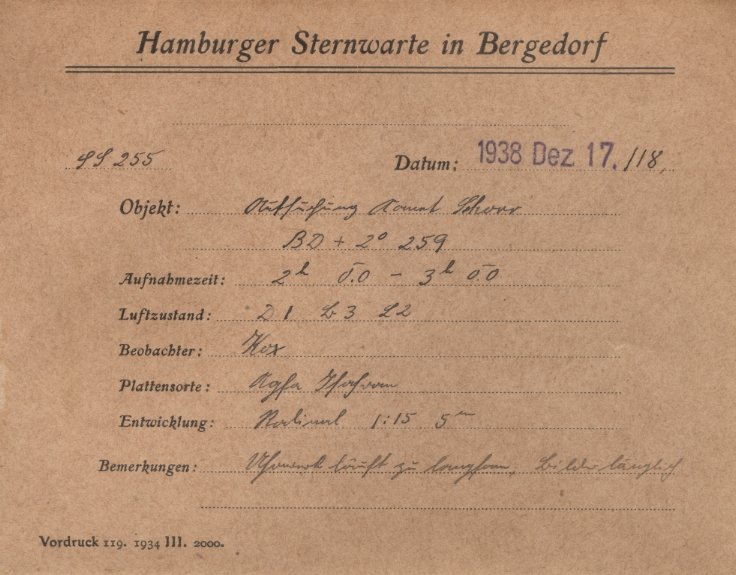 Hamburger Sternwarte in Bergedorf
SS 255
Datum: 1938 Dez 17./18.
Objekt: Aufsuchung Komet Schorr
BD + 2° 259
Aufnahmezeit: 2h 0.0 - 3h 00
Luftzustand: D1 B3 L2
Beobachter: Kox
Plattensorte: Agfa Isochrom
Entwicklung: Rodinal 1:15 5m
Bemerkungen: Uhrwerk läuft zu langsam, Bilder länglich
Vordruck 119. 1934 III. 2000.